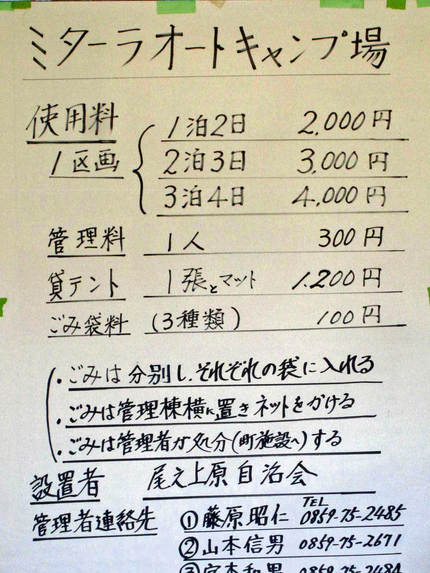 ミターラオートキャンプ場
使用料 1泊2日 2,000円
1区画 2泊3日 3,000円
3泊4日 4,000円
管理料 1人 300円
貸テント 1張とマット 1,200円
ごみ袋料 (3種類) 100円
・ごみは分別し、それぞれの袋に入れる
・ごみは管理棟横に置きネットをかける
・ごみは管理者が処分(町施設へ)する
設置者 尾之上原自治会
管理者連絡先 ①藤原昭仁 TEL 0859-75-2485
②山本信男 0859-75-2671